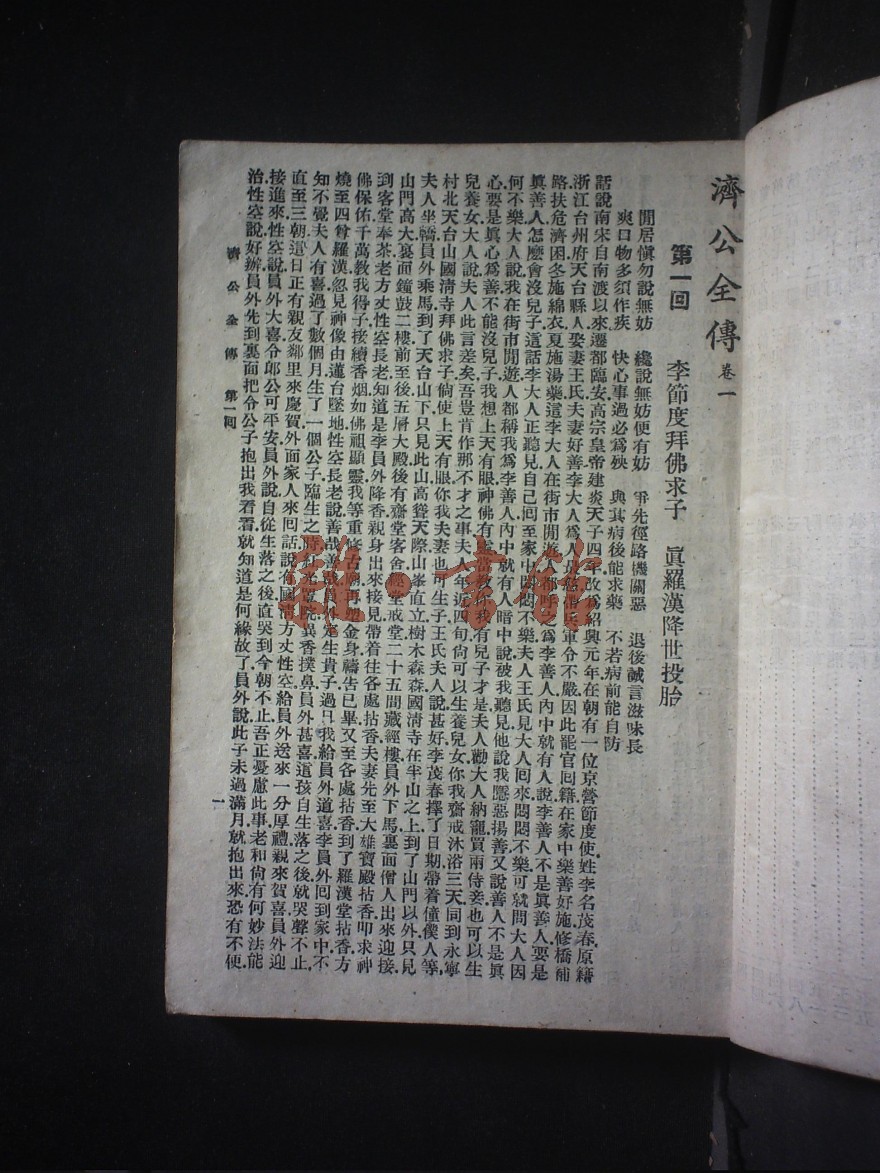 濟公全傳 卷一
第一回 李節度拜佛求子 眞羅漢降世投胎
閒居愼勿說無妨 纔說無妨便有妨 爭先徑路機關惡 退後誠言滋味長
爽口物多須作疾 快心事過必爲殃 與其病後能求藥 不若病前能自防
話說南宋自南渡以來遷都臨安高宗皇帝建炎天子四年改爲紹興元年在朝有一位京營節度使姓李名茂春原籍
浙江台州府天台縣人娶妻王氏夫妻好善李大人爲人最慈惜兵軍令不嚴因此罷官囘籍在家中樂善好施修橋補
路扶危濟困冬施綿衣夏施湯藥這李大人在街市閒遊人都呼爲李善人內中就有人說李善人不是眞善人要是
眞善人怎麽會沒兒子這話李大人正聽見自己囘至家中悶悶不樂夫人王氏見大人囘來悶悶不樂可就問大人因
何不樂大人說我在街市閒遊人都稱我爲李善人內中就有人暗中說被我聽見他說我隱惡揚善又說善人不是眞
心要是眞心爲善不能沒兒子我想上天有眼神佛有靈當敎你我有兒子才是夫人勸大人納寵買兩侍妾也可以生
兒養女大人說夫人此言差矣吾豈肯作那不才之事夫人年近四旬尙可以生養兒女你我齋戒沐浴三天同到永寧
村北天台山國淸寺拜佛求子倘使上天有眼你我夫妻也可生子王氏夫人說甚好李茂春擇了日期帶着僮僕人等
夫人坐轎員外乘馬到了天台山下只見此山高聳天際山峯直立樹木森森國淸寺在半山之上到了山門以外只見
山門高大裏面鐘鼓二樓前至後五層大殿後有齋堂客舍經堂戒堂二十五間藏經樓員外下馬裏面僧人出來迎接
到客堂奉茶老方丈性空長老知道是李員外降香親身出來接見帶着往各處拈香夫妻先至大雄寶殿拈香叩求神
佛保佑千萬敎我得子接續香烟如佛祖顯靈我等重修古廟再塑金身禱吿已畢又至各處拈香到了羅漢堂拈香方
燒至四尊羅漢忽見神像由蓮台墜地性空長老說善哉善哉員外定生貴子過日我給員外道喜李員外囘到家中不
知不覺夫人有喜過了數個月生了一個公子臨生之時紅光罩院異香撲鼻員外甚喜這孩自生落之後就哭聲不止
直至三朝這日正有親友鄰里來慶賀外面家人來囘話說有國淸方丈性空給員外送來一分厚禮親來賀喜員外迎
接進來性空說員外大喜令郞公可平安員外說自從生落之後直哭到今朝不止吾正憂慮此事老和尙有何妙法能
治性空說好辦員外先到裏面把令公子抱出我看看就知道是何緣故了員外說此子未過滿月就抱出來恐有不便
濟公全傳 第一回
一